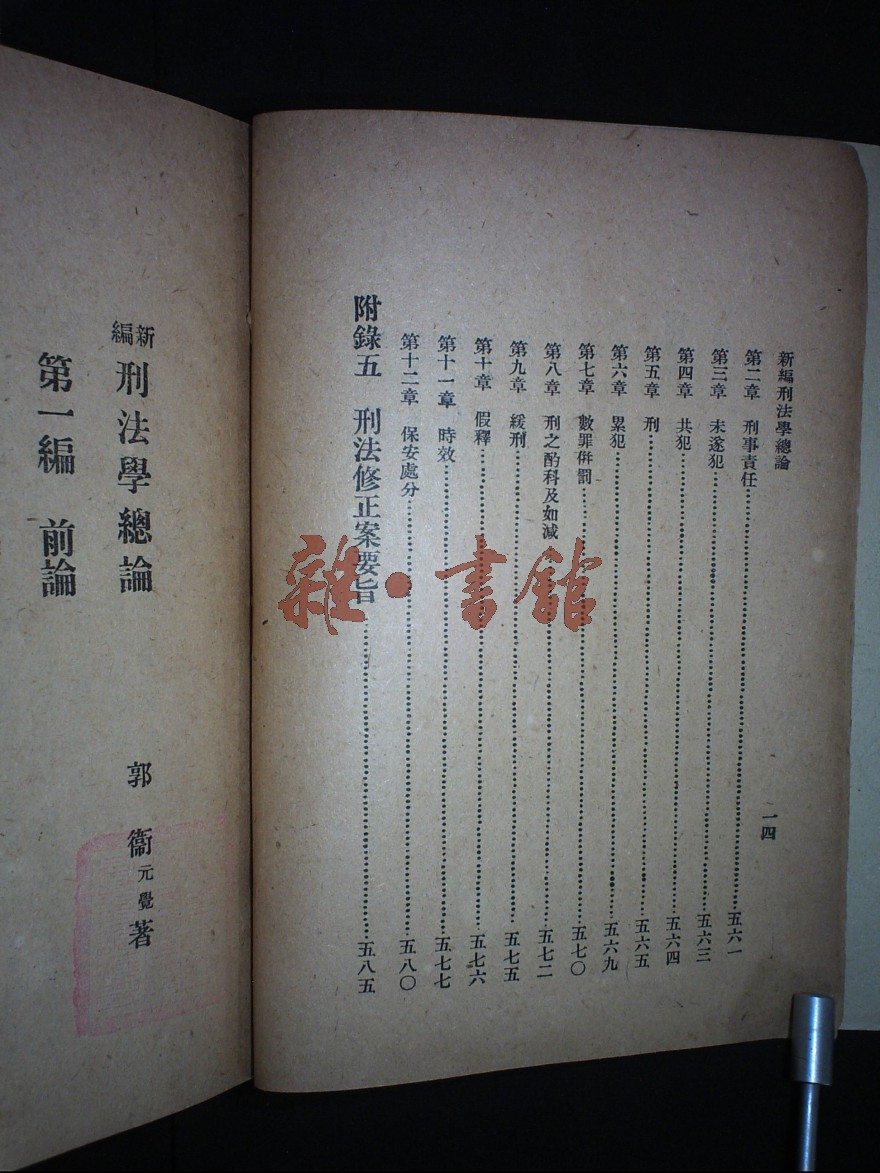 新編刑法學總論
一四
第二章 刑事責任……五六一
第三章 未遂犯……五六三
第四章 共犯……五六四
第五章 刑……五六五
第六章 累犯……五六九
第七章 數罪併罰……五七〇
第八章 刑之酌科及如減……五七二
第九章 緩刑……五七五
第十章 假釋……五七六
第十一章 時效……五七七
第十二章 保安處分……五八〇
附錄五 刑法修正案要旨……五八五
新編 刑法學總論
郭衞元覺著
第一編 前論
雜·書館